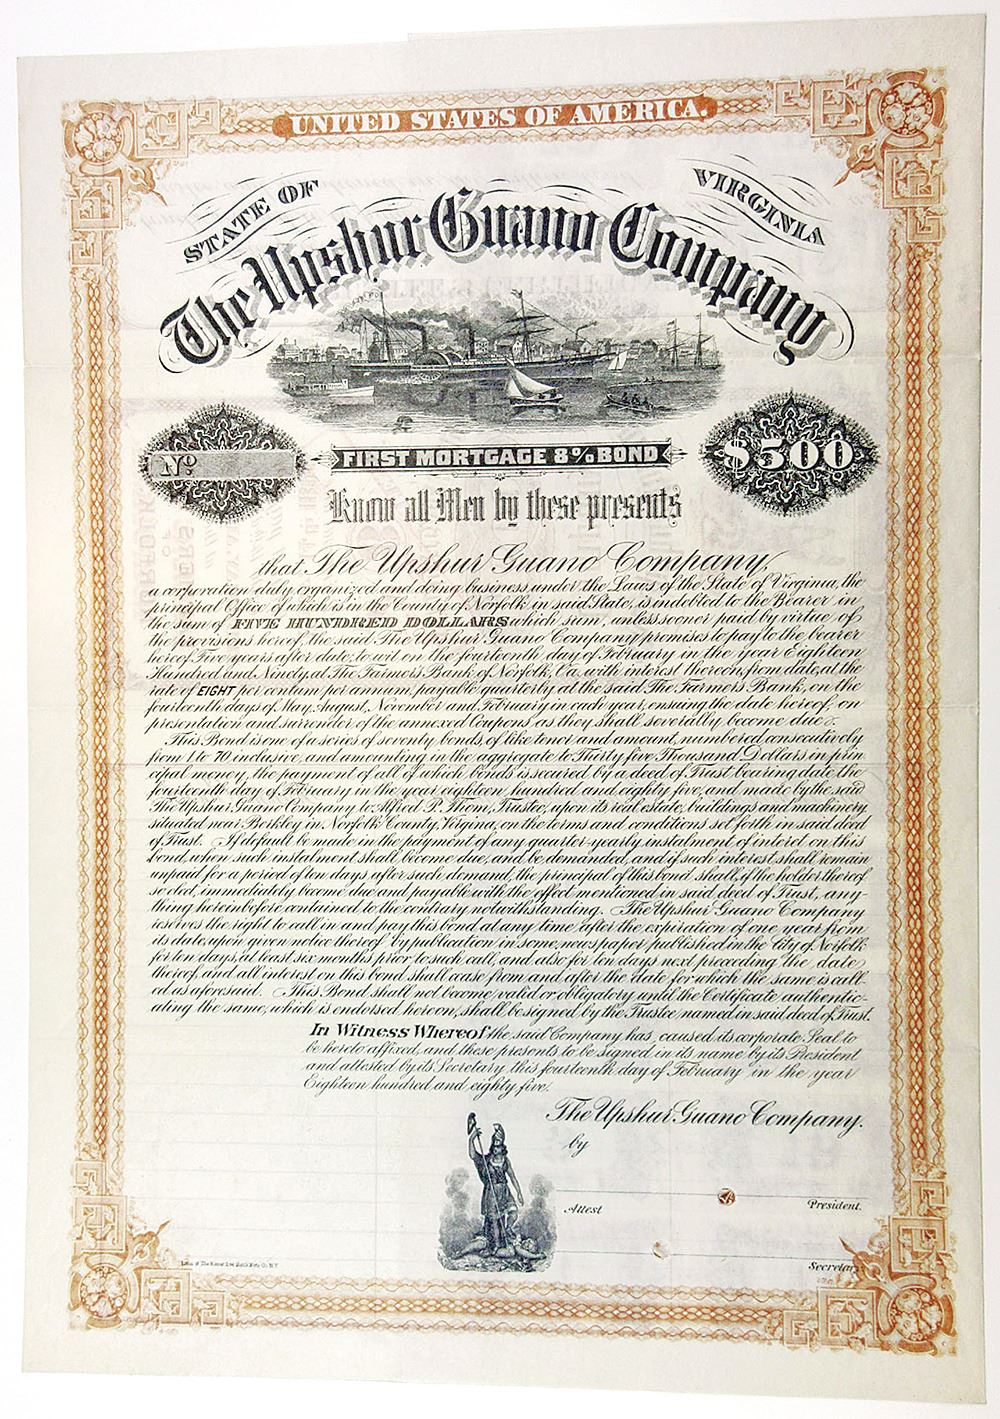 UNITED STATES OF AMERICA.
STATE OF VIRGINIA
The Upshur Guano Company
No
$500
FIRST MORTGAGE 8% BOND
Know all Men by these presents
that The Upshur Guano Company,
a corporation duly organized and doing business under the Laws of the State of Virginia, the
principal Office of which is in the County of Norfolk in said State, is indebted to the Bearer in
the sum of FIVE HUNDRED DOLLARS which sum, unless sooner paid by virtue of
the provisions hereof, the said The Upshur Guano Company promises to pay to the bearer
hereof Five years after date, to wit on the fourteenth day of February in the year Eighteen
Hundred and Ninety, at The Farmers Bank of Norfolk, Va. with interest thereon, from date, at the
rate of EIGHT per centum per annum, payable quarterly at the said The Farmers Bank, on the
fourteenth days of May, August, November and February in each year, ensuing the date hereof, on
presentation and surrender of the annexed Coupons as they shall severally become due.
This Bond is one of a series of seventy bonds, of like tenor and amount, numbered consecutively
from 1 to 70 inclusive, and amounting in the aggregate to Thirty five Thousand Dollars in prin
cipal money, the payment of all of which bonds is secured by a deed of Trust bearing date the
fourteenth day of February in the year eighteen hundred and eighty five, and made by the said
The Upshur Guano Company to Alfred P. Thom, Trustee, upon its real estate, buildings and machinery
situated near Berkley in Norfolk County, Virgina, on the terms and conditions set forth in said deed
of Trust. If default be made in the payment of any quarter-yearly instalment of interet on this
bond, when such instalment shall become due, and be demanded, and of such interest shall remain
unpaid for a period of ten days after such demand, the principal of this bond shall, if the holder thereof
so elect, immediately become due and payable with the effect mentioned in said deed of Trust, any-
thing hereinbefore contained to the contrary notwithstanding. The Upshur Guano Company
reserves the right to call in and pay this bond at any time after the expiration of one year from
its date, upon given notice thereof by publication in some newspaper published in the City of Norfolk
for ten days, at least six months prior to such call, and also for ten days next preceeding the date
thereof, and all interest on this bond shall cease from and after the date for which the same is call-
ed as aforesaid. This Bond shall not become valid or obligatory until the Certificate authentic-
ating the same, which is endorsed hereon, shall be signed by the Trustee named in said deed of Trust.
In Witness Whereof the said Company has caused its corporate Seal to
be hereto affixed, and these presents to be signed in its name by its President
and attested by its Secretary this fourteenth day of February in the year
Eighteen hundred and eighty five.
The Upshur Guano Company.
by
Attest
President.
Secretary